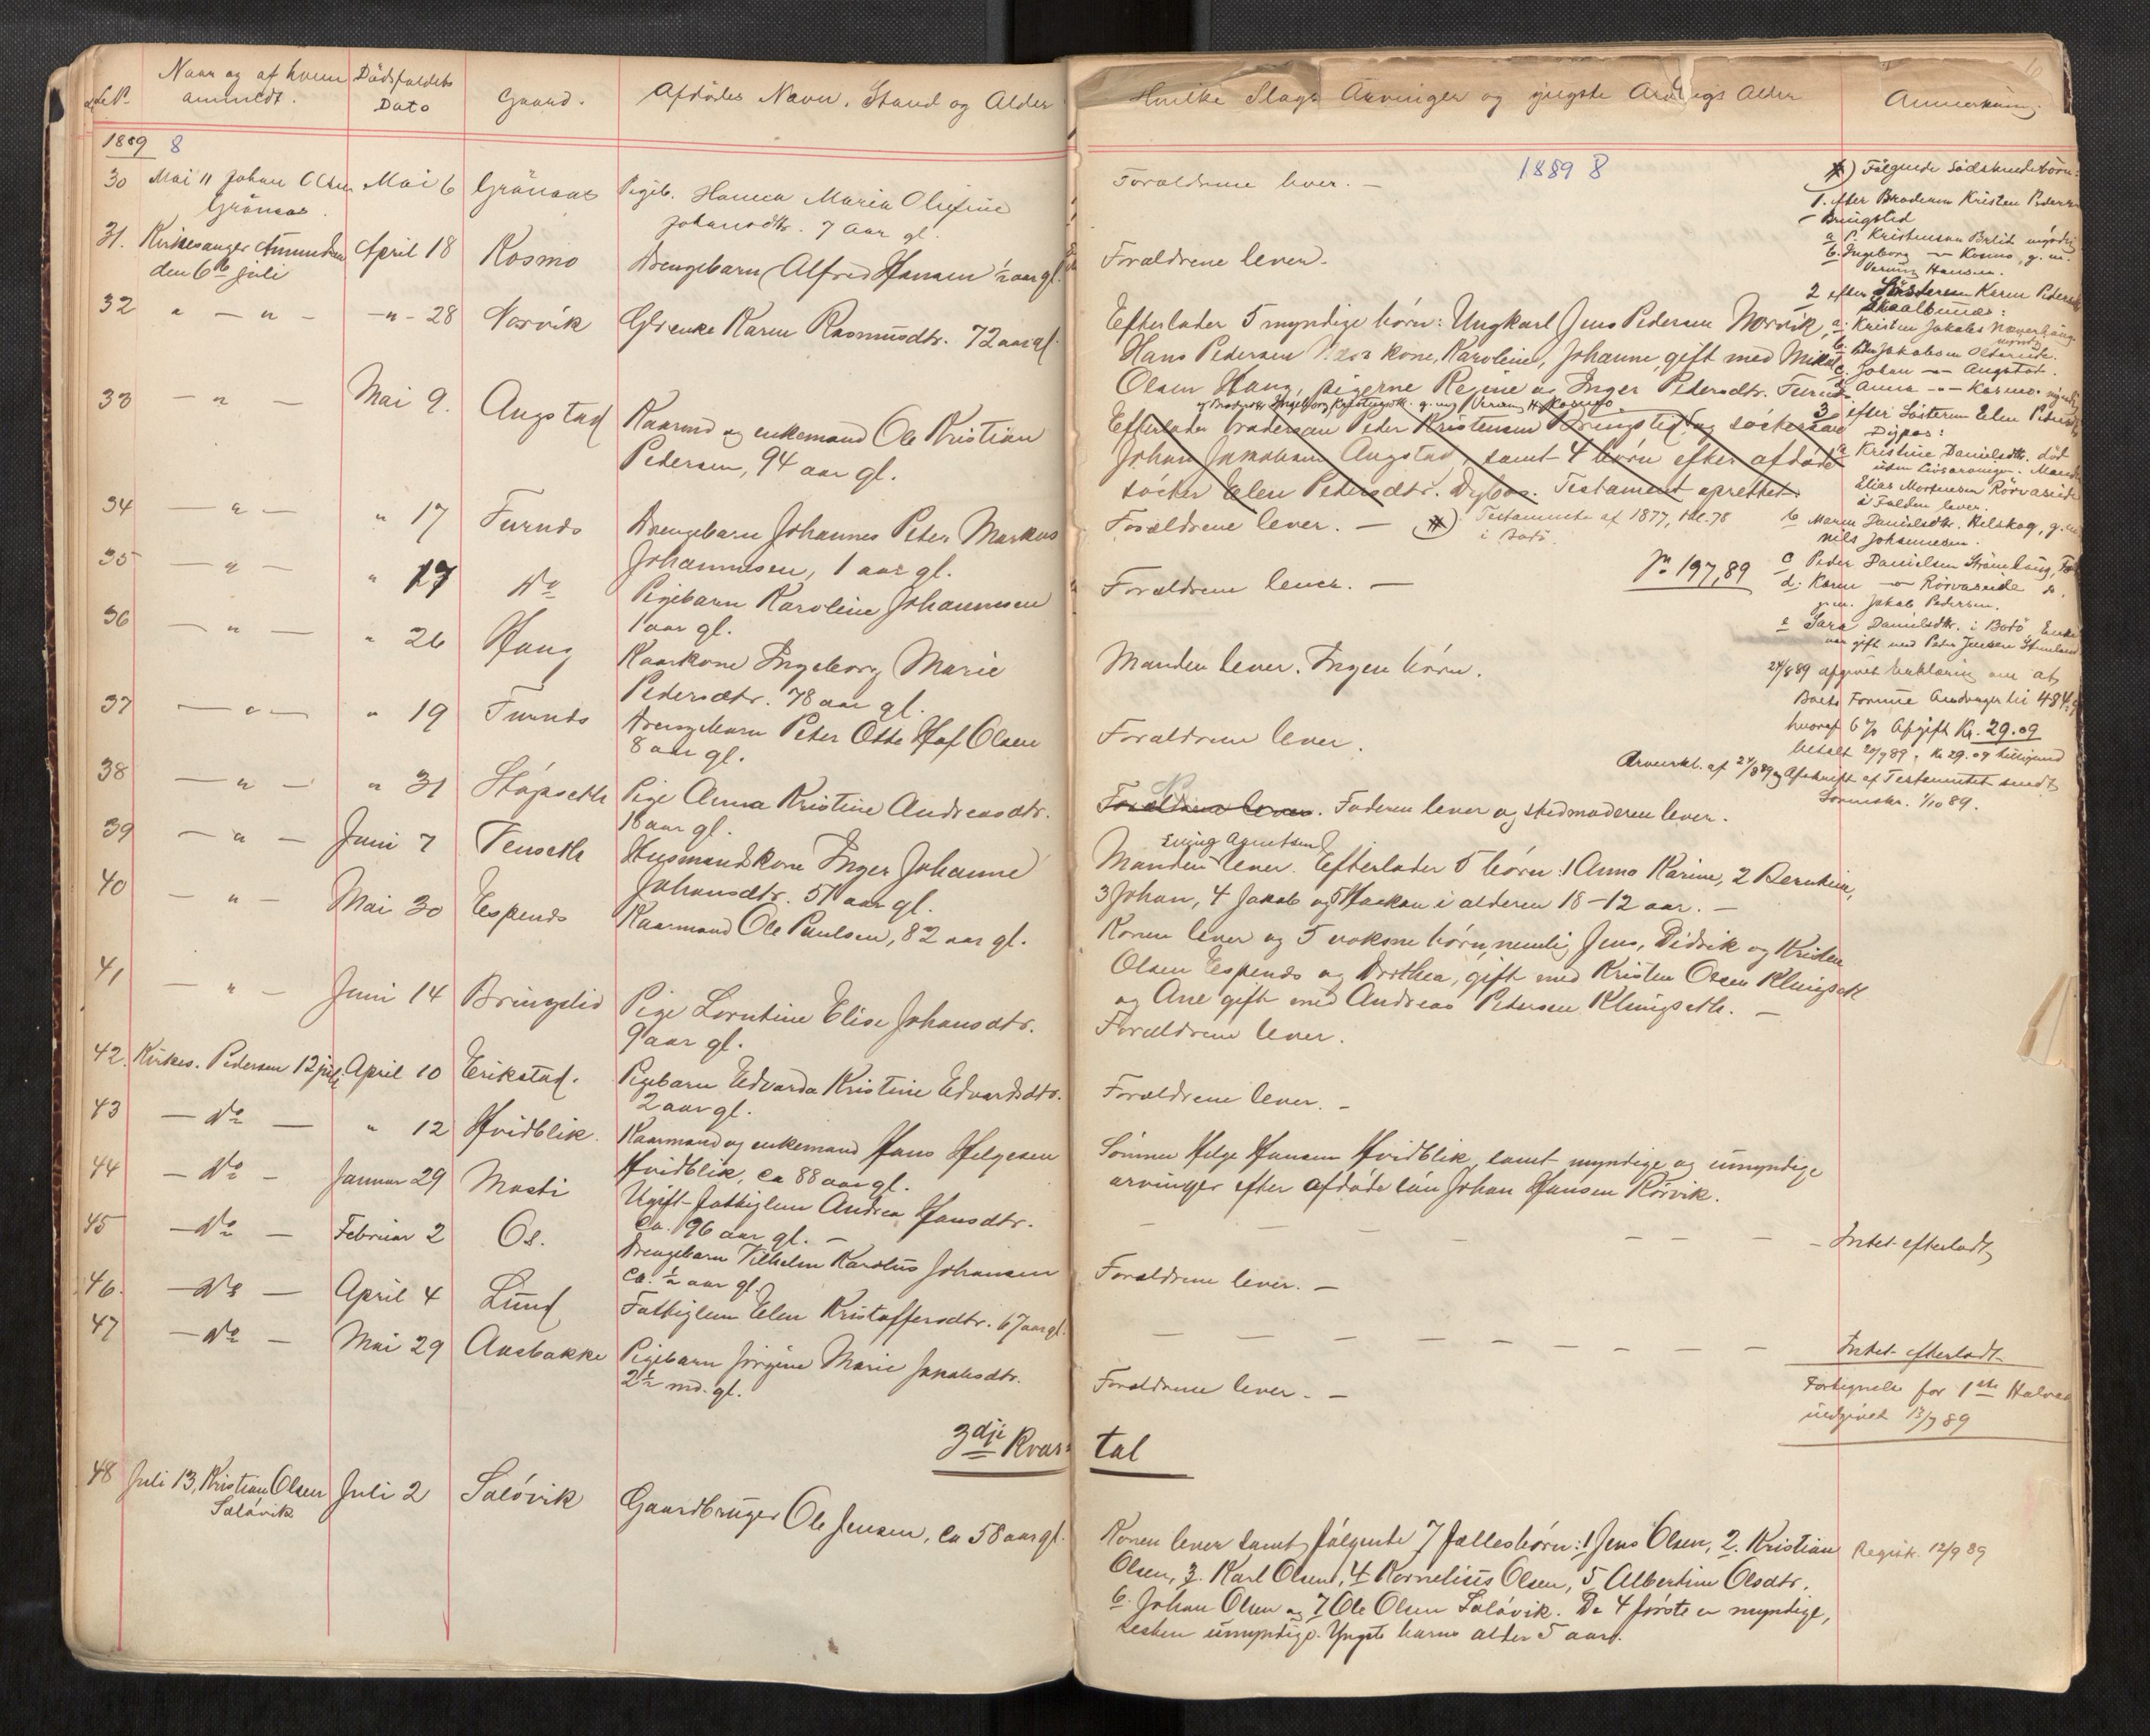 Naar og af hvem anmeldt.
Dødsfaldets Dato
Gaard.
Afdødes Navn, Stand og Alder
1889 8
30 Mai 11 Johan Olsen Mai 6 Grønaas Pigeb. Hanna Maria Olufine
Grønaas. Johansdtr. 7 aar gl.
31. Kirkesanger Amundsen April 18 Kosmo Drengebarn Alfred Hansen ½ aar gl.
den 6te juli
32 " — " — — " — 28 Norvik Gbr.enke Karen Rasmusdtr. 72 aar gl.
33 — " — Mai 9. Augstad Kaarmd og enkemand Ole Kristian
Pedersen, 94 aar gl.
34 — " — " 17 Furnds Drengebarn Johannes Peter Markus
Johannesen, 1 aar gl.
35 — " — " 17 Do Pigebarn Karoline Johannesen
1 aar gl.
36 — " — " 26 Haug Kaarkone Ingeborg Marie
Pedersdtr. 78 aar gl.
37 — " — " 19 Furnds Drengebarn Peter Otto Haf Olsen
8 aar gl.
38 — " — " 31 Støpseth Pige Anna Kristine Andreasdtr.
18 aar gl.
39 — " — Juni 7 Tenseth Husmandskone Inger Johanne
Johansdtr. 51 aar gl.
40 — " — Mai 30 Espends Kaarmand Ole Paulsen, 82 aar gl.
41 — " — Juni 14 Bringslid Pige Lorntine Elise Johansdtr.
9 aar gl.
42. Kirkes. Pedersen 12 juli April 10 Erikstad. Pigebarn Edvarda Kristine Edvardsdtr.
2 aar gl.
43 — Do — " 12 Hvidblik. Kaarmand og enkemand Hans Helgesen
Hvidblik, ca 88 aar gl.
44 — Do — Januar 29 Mosti Ugift fattiglem Andrea Hansdtr.
ca. 96 aar gl. —
45 — Do — Februar 2 Os. Drengebarn Vilhelm Karolus Johansen
ca. ½ aar gl.
46. — Do — April 4 Lund Fattiglem Elen Kristoffersdtr. 67 aar gl.
47 — Do — Mai 29 Aasbakke Pigebarn Jørgine Marie Jakobsdtr.
2½ md. gl.
3dje Kvar-
48 Juli 13, Kristian Olsen Juli 2 Saløvik Gaardbruger Ole Jensen, ca 58 aar gl.
Saløvik
Hvilke Slags Arvinger og yngste Arvings Alder
Anmerkning.
1889 8
Forældrene lever. —
Forældrene lever.
Efterlader 5 myndige børn: Ungkarl Jens Pedersen Norvik,
Hans Pedersen kone, Karoline, Johanne, gift med Mikal
Olsen Haug, pigerne Regine og Inger Pedersdtr. Furnds
og Broderdtr. Ingeborg Kristensdtr. g. m.
Efterlader brodersøn Peder Kristensen Bringslid og søstersøn
Johan Jakobsen Augstad, samt 4 børn efter afdøde
søster Elen Pedersdtr. Dypos. Testament oprettet.
Forældrene lever. — #) Testamente af 1877,
i Bodø.
Forældrene lever. —
Nr 197,89
Manden lever. Ingen børn.
Forældrene lever.
Forældrene lever. Faderen lever og stedmoderen lever.
Manden lever. Efterlader 5 børn: 1 Anna Karine, 2 Berntine,
3 Johan, 4 Jakob og 5 Haakon i alderen 18–12 aar. —
Konen lever og 5 voksne børn, nemlig Jens, Didrik og Kristen
Olsen Espends og Dorthea, gift med Kristen Olsen Klungseth
og Ane gift med Andreas Pedersen Klungseth. —
Forældrene lever.
Forældrene lever. —
Sønnen Helge Hansen Hvidblik, samt myndige og umyndige
arvinger efter afdøde søn Johan Hansen Rørvik.
— — — — — — — Intet efterladt
Forældrene lever. —
— — — — — — — Intet efterladt
Forældrene lever. —
tal
Konen lever samt følgende 7 fællesbørn: 1 Jens Olsen, 2. Kristian
Olsen, 3. Karl Olsen, 4 Kornelius Olsen, 5 Albertine Olsdtr.
6. Johan Olsen og 7 Ole Olsen Saløvik. De 4 første er myndige,
resten umyndige. Yngste barns alder 5 aar.
#) Følgende Sødskendebørn:
1. efter Broderen Kristen Pedersen
Bringslid
a P. Kristensen Bringslid myndig
b. Ingeborg — Kosmo, g. m.
Hansen.
2 efter Søsteren Karen Pedersd.
a. Kristen Jakobs
b. Peder Jakobsen
c. Johan — Augstad.
d. Anna — Kosmo
3 efter Søsteren Elen Pedersdtr
Dypos:
a Kristine Danielsdtr. død
uden Livsarvinger. Manden
Elias Mortensen Rørvaseide
i Folden lever.
b Maren Danielsdtr. Helskog, g. m.
Nils Johannesen.
c Peder Danielsen
d. Karen — Rørvaseide
g. m. Jakob Pedersen.
e Sara Danielsdtr. i Bodø, Enke
var gift med Peder Jensen
24/8 89 afgivet Erklæring om at
Boets Formue andrager til 484,
hvoraf 6 % Afgift Kr. 29.09
betalt 20/9 89, Kr 29.09
Arveerkl. af 24/8 89 og Afskrift af Testamentet sendt
Sorenskr. 1/10 89.
Fortegnelse for 1ste Halvaar
indgivet 13/7 89
Registr. 12/9 89